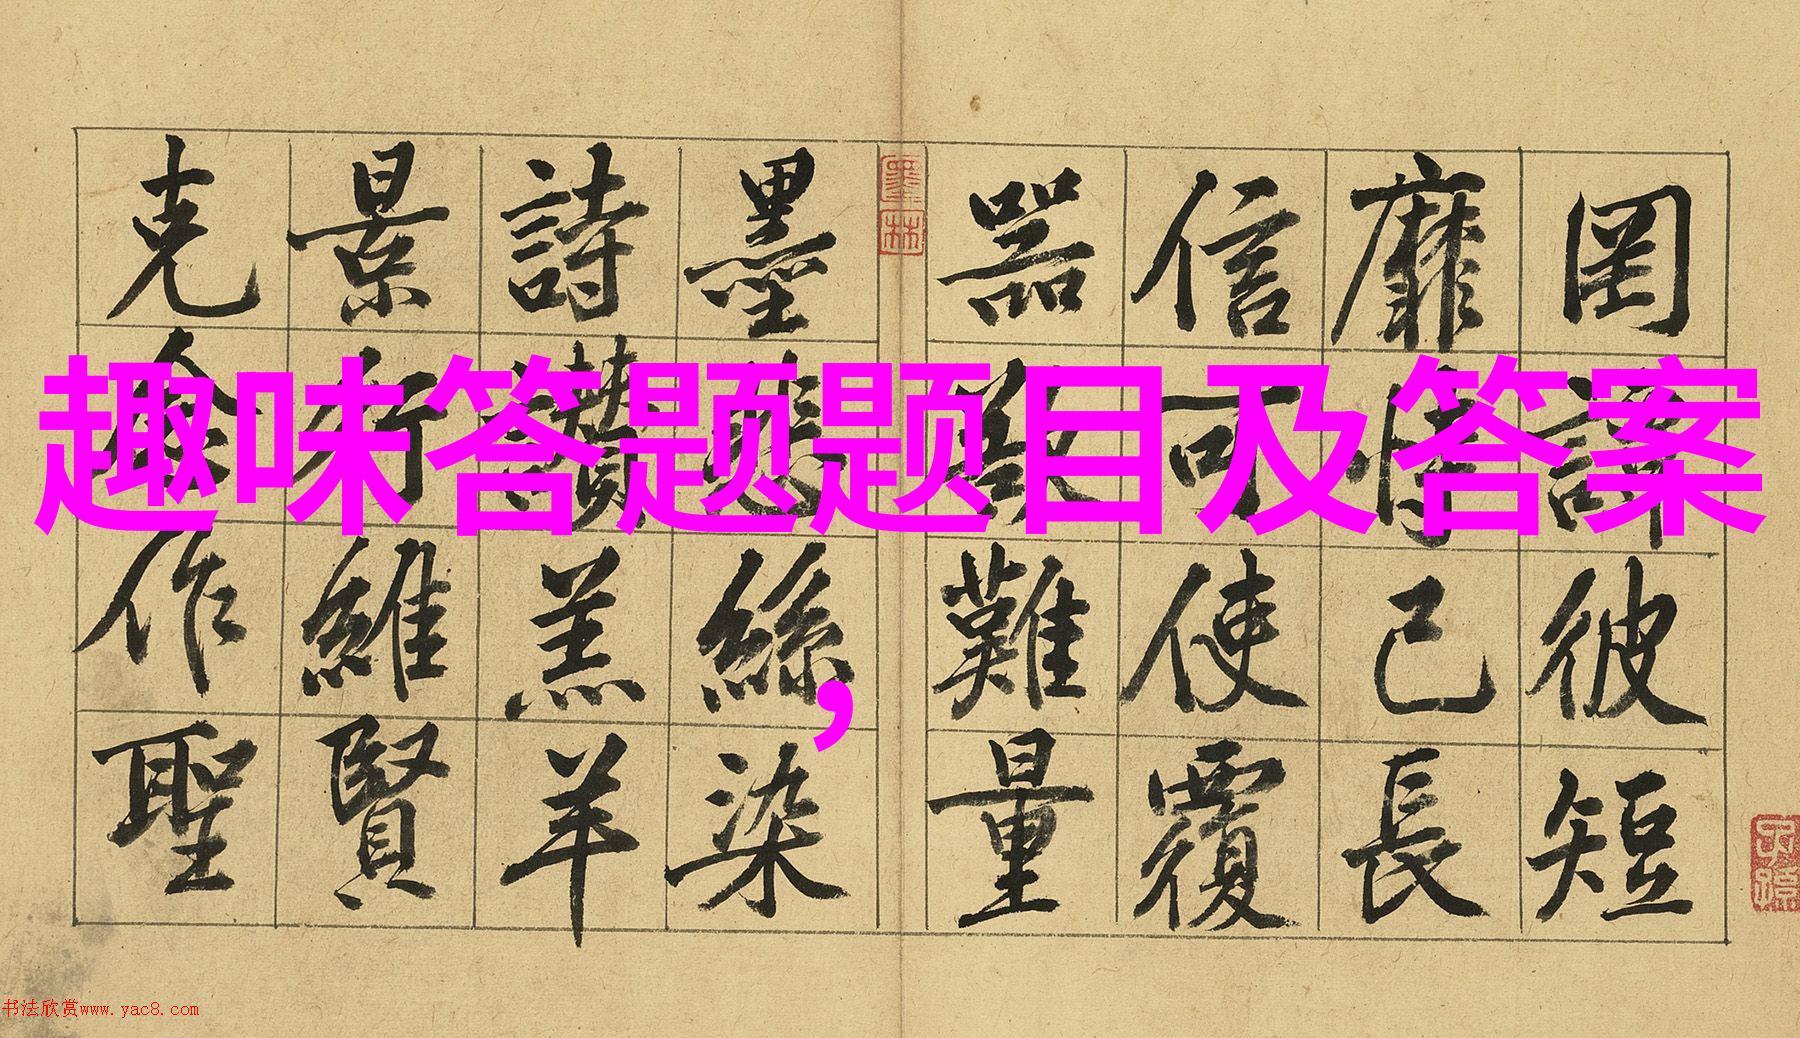 罔談彼短
靡恃己長
信可使覆
器欲難量
墨林
墨悲絲染
詩讚羔羊
景行維賢
克念作聖
趣味答题题目及答案
,
书法欣赏www.yac8.com